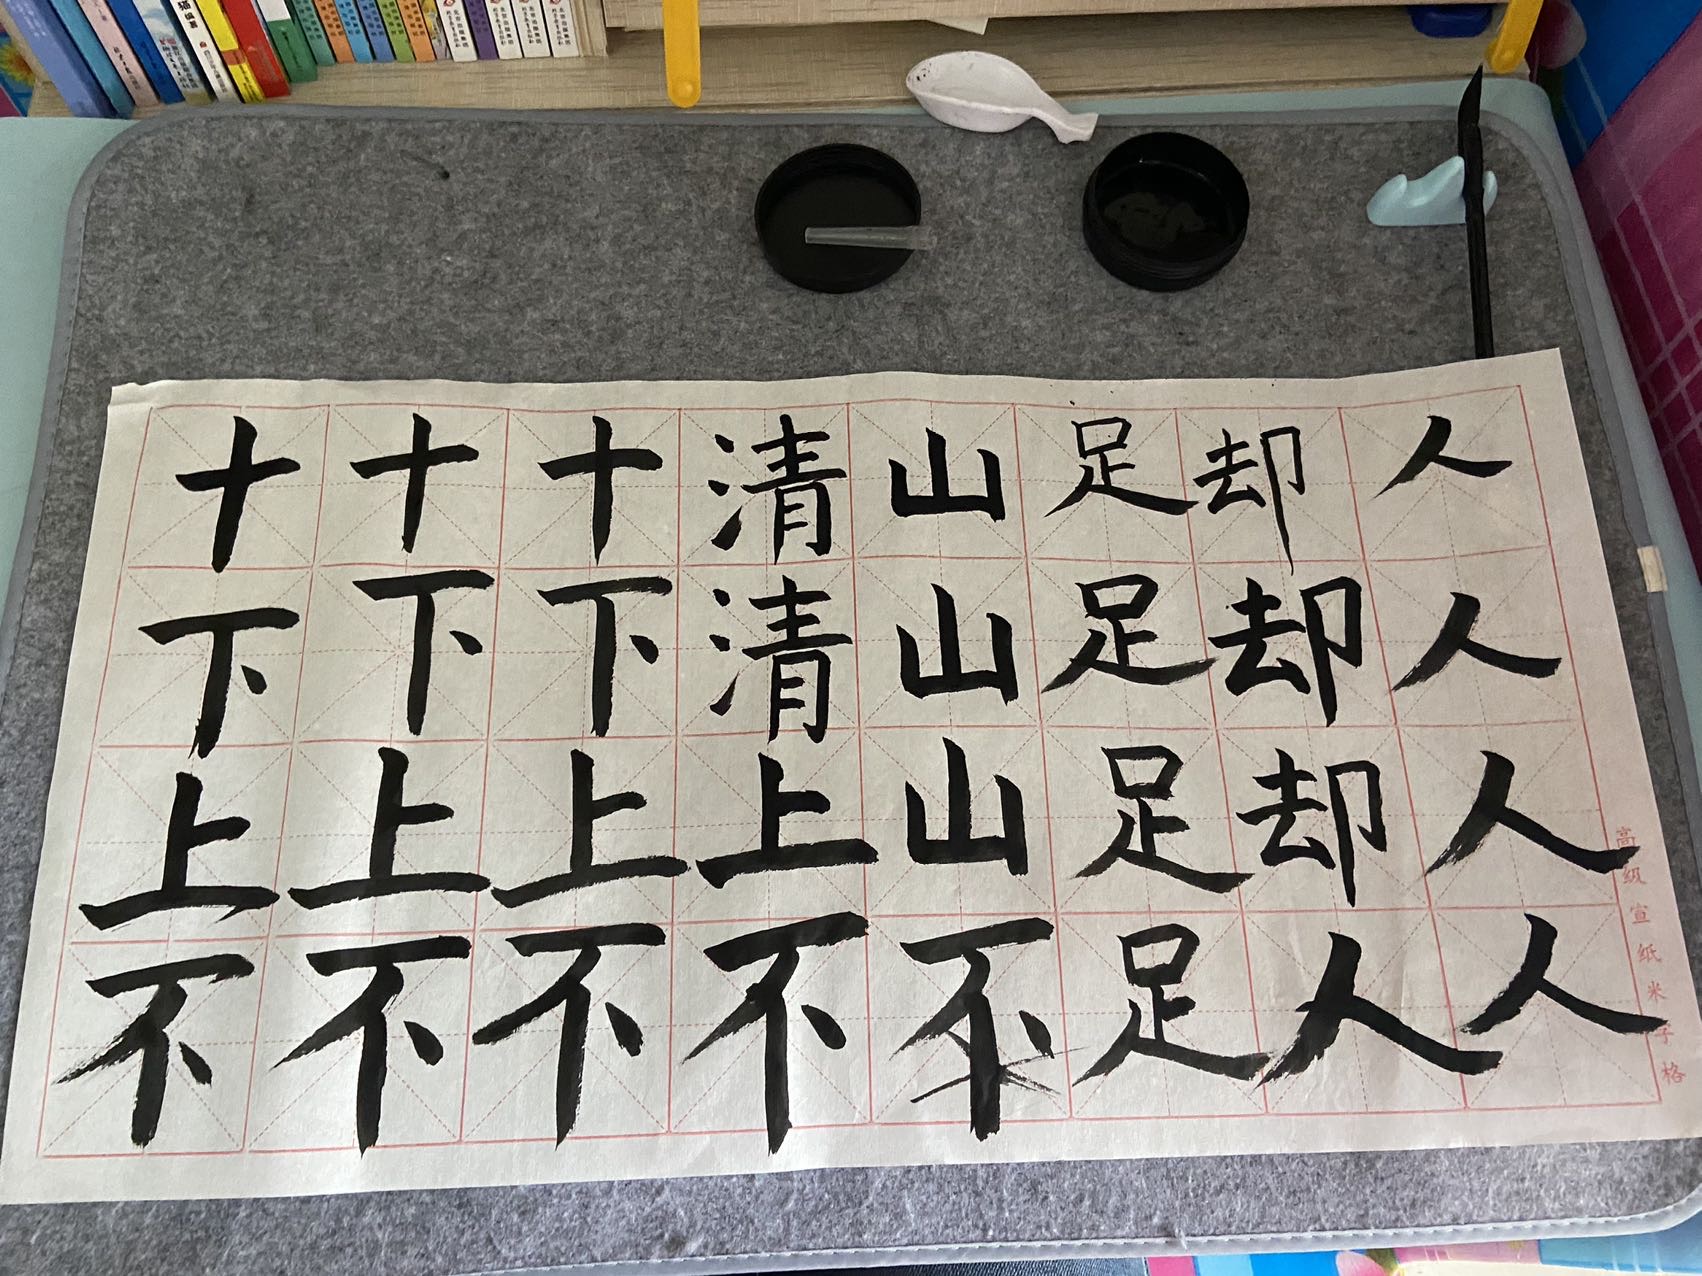 十十十清山足却人
下下下清山足却人
上上上上山足却人
不不不不不足人人
高级宣纸米字格